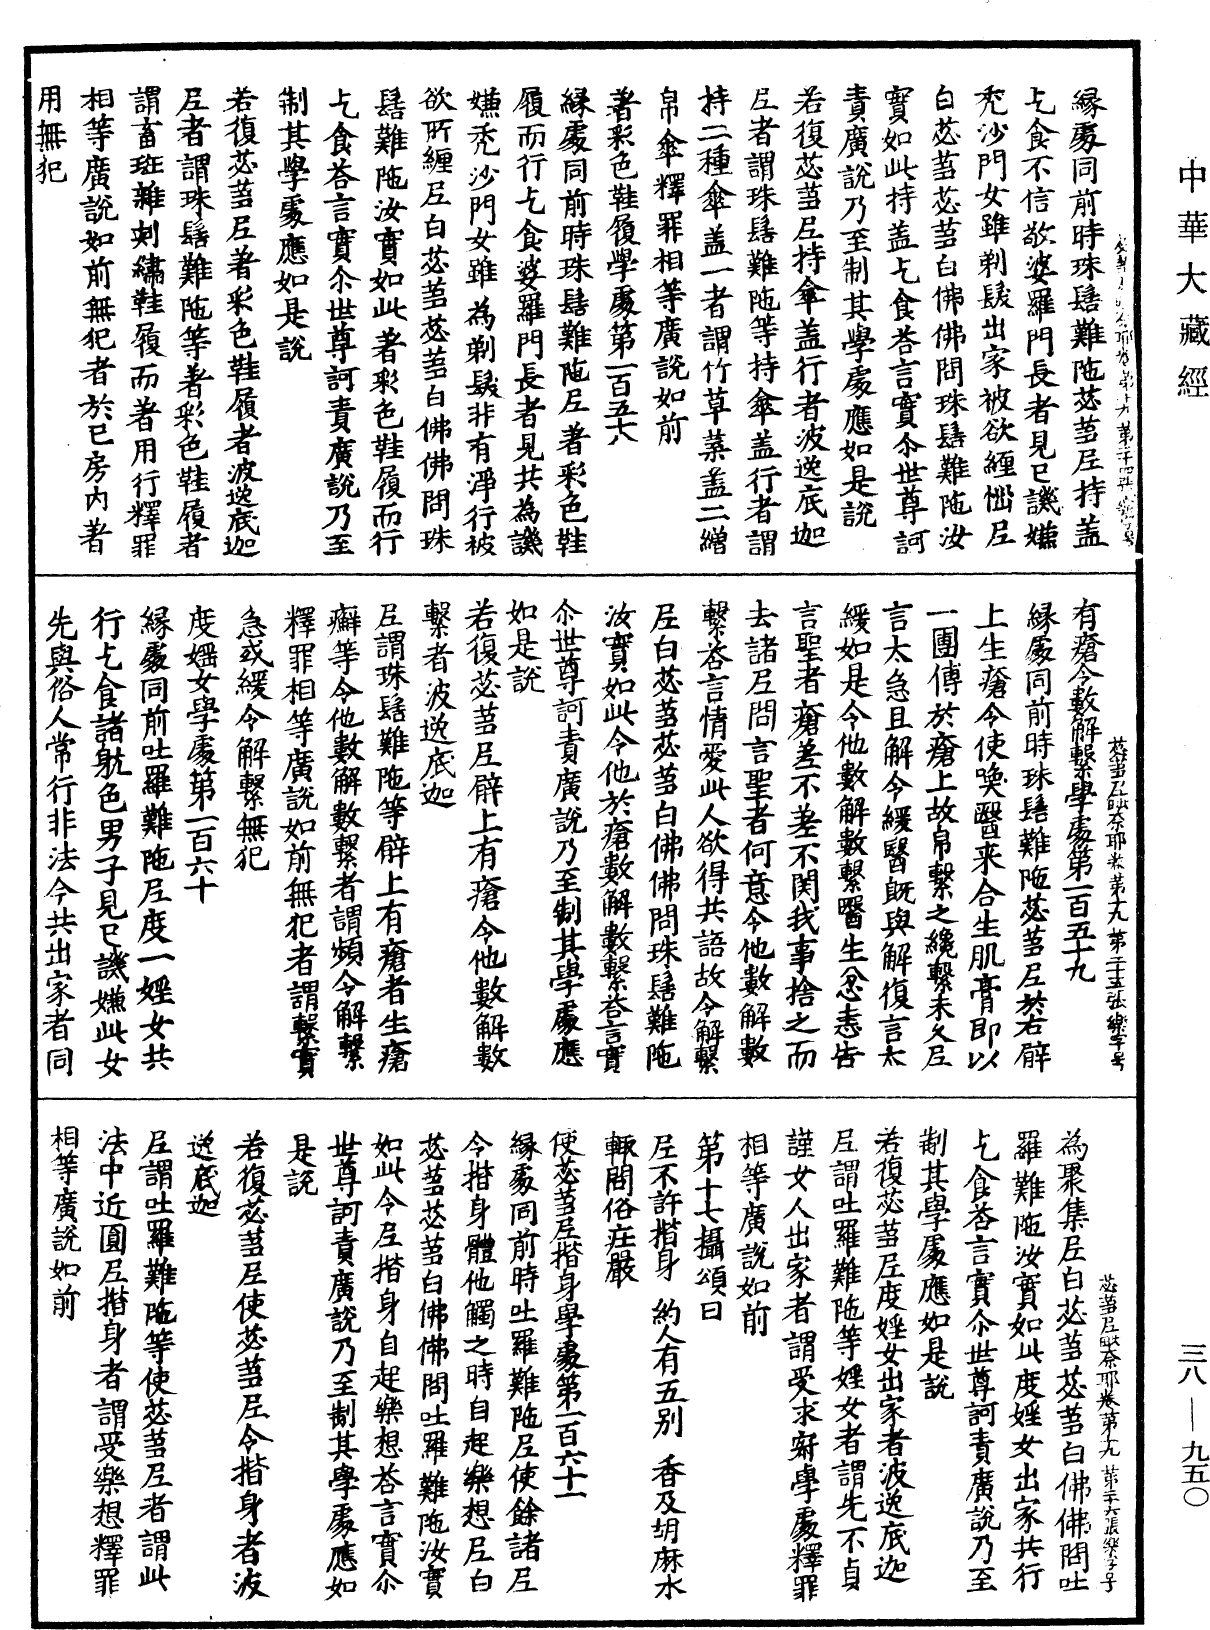 中華大藏經
三八—九五〇
緣處同前時珠髻難陁苾芻尼持盖
乞食不信敬婆羅門長者見已譏嫌
禿沙門女雖剃髮出家被欲纏惱尼
白苾芻苾芻白佛佛問珠髻難陁汝
實如此持盖乞食荅言實尒世尊訶
責廣說乃至制其學處應如是說
若復苾芻尼持傘盖行者波逸底迦
尼者謂珠髻難陁等持傘盖行者謂
持二種傘盖一者謂竹草葉盖二繒
帛傘釋罪相等廣說如前
著彩色鞋履學處第一百五十八
緣處同前時珠髻難陁尼著彩色鞋
履而行乞食婆羅門長者見共為譏
嫌禿沙門女雖為剃髮非有淨行被
欲所纏尼白苾芻苾芻白佛佛問珠
髻難陁汝實如此著彩色鞋履而行
乞食荅言實尒世尊訶責廣說乃至
制其學處應如是說
若復苾芻尼著彩色鞋履者波逸底迦
尼者謂珠髻難陁等著彩色鞋履者
謂畜斑雜刾繡鞋履而著用行釋罪
相等廣說如前無犯者於已房內著
用無犯
苾芻尼毗奈耶卷第十九 第二十五張 樂字号
有瘡令數解繫學處第一百五十九
緣處同前時珠髻難陁苾芻尼於右臂
上生瘡令使喚醫來合生肌膏即以
一團傅於瘡上故帛繫之纔繫未久尼
言太急且解令緩醫既與解復言太
緩如是令他數解數繫醫生忿恚告
言聖者瘡差不差不関我事捨之而
去諸尼問言聖者何意令他數解數
繫荅言情愛此人欲得共語故令解繫
尼白苾芻苾芻白佛佛問珠髻難陁
汝實如此令他於瘡數解數繫荅言實
尒世尊訶責廣說乃至制其學處應
如是說
若復苾芻尼臂上有瘡令他數解數
繫者波逸底迦
尼謂珠髻難陁等臂上有瘡者生瘡
癬等令他數解數繫者謂頻令解繫
釋罪相等廣說如前無犯者謂繫實
急或緩令解繫無犯
度婬女學處第一百六十
緣處同前吐羅難陁尼度一婬女共
行乞食諸躭色男子見已譏嫌此女
先與俗人常行非法今共出家者同
苾芻尼毗奈耶卷第十九 第二十六張 樂字号
為聚集尼白苾芻苾芻白佛佛問吐
羅難陁汝實如此度婬女出家共行
乞食荅言實尒世尊訶責廣說乃至
制其學處應如是說
若復苾芻尼度婬女出家者波逸底迦
尼謂吐羅難陁等婬女者謂先不貞
謹女人出家者謂受求寂學處釋罪
相等廣說如前
第十七攝頌曰
尼不許揩身 約人有五别 香及胡麻水
輙問俗庄嚴
使苾芻尼揩身學處第一百六十一
緣處同前時吐羅難陁尼使餘諸尼
令揩身體他觸之時自起樂想尼白
苾芻苾芻白佛佛問吐羅難陁汝實
如此令尼揩身自起樂想荅言實尒
世尊訶責廣說乃至制其學處應如
是說
若復苾芻尼使苾芻尼令揩身者波
逸底迦
尼謂吐羅難陁等使苾芻尼者謂此
法中近圓尼揩身者謂受樂想釋罪
相等廣說如前